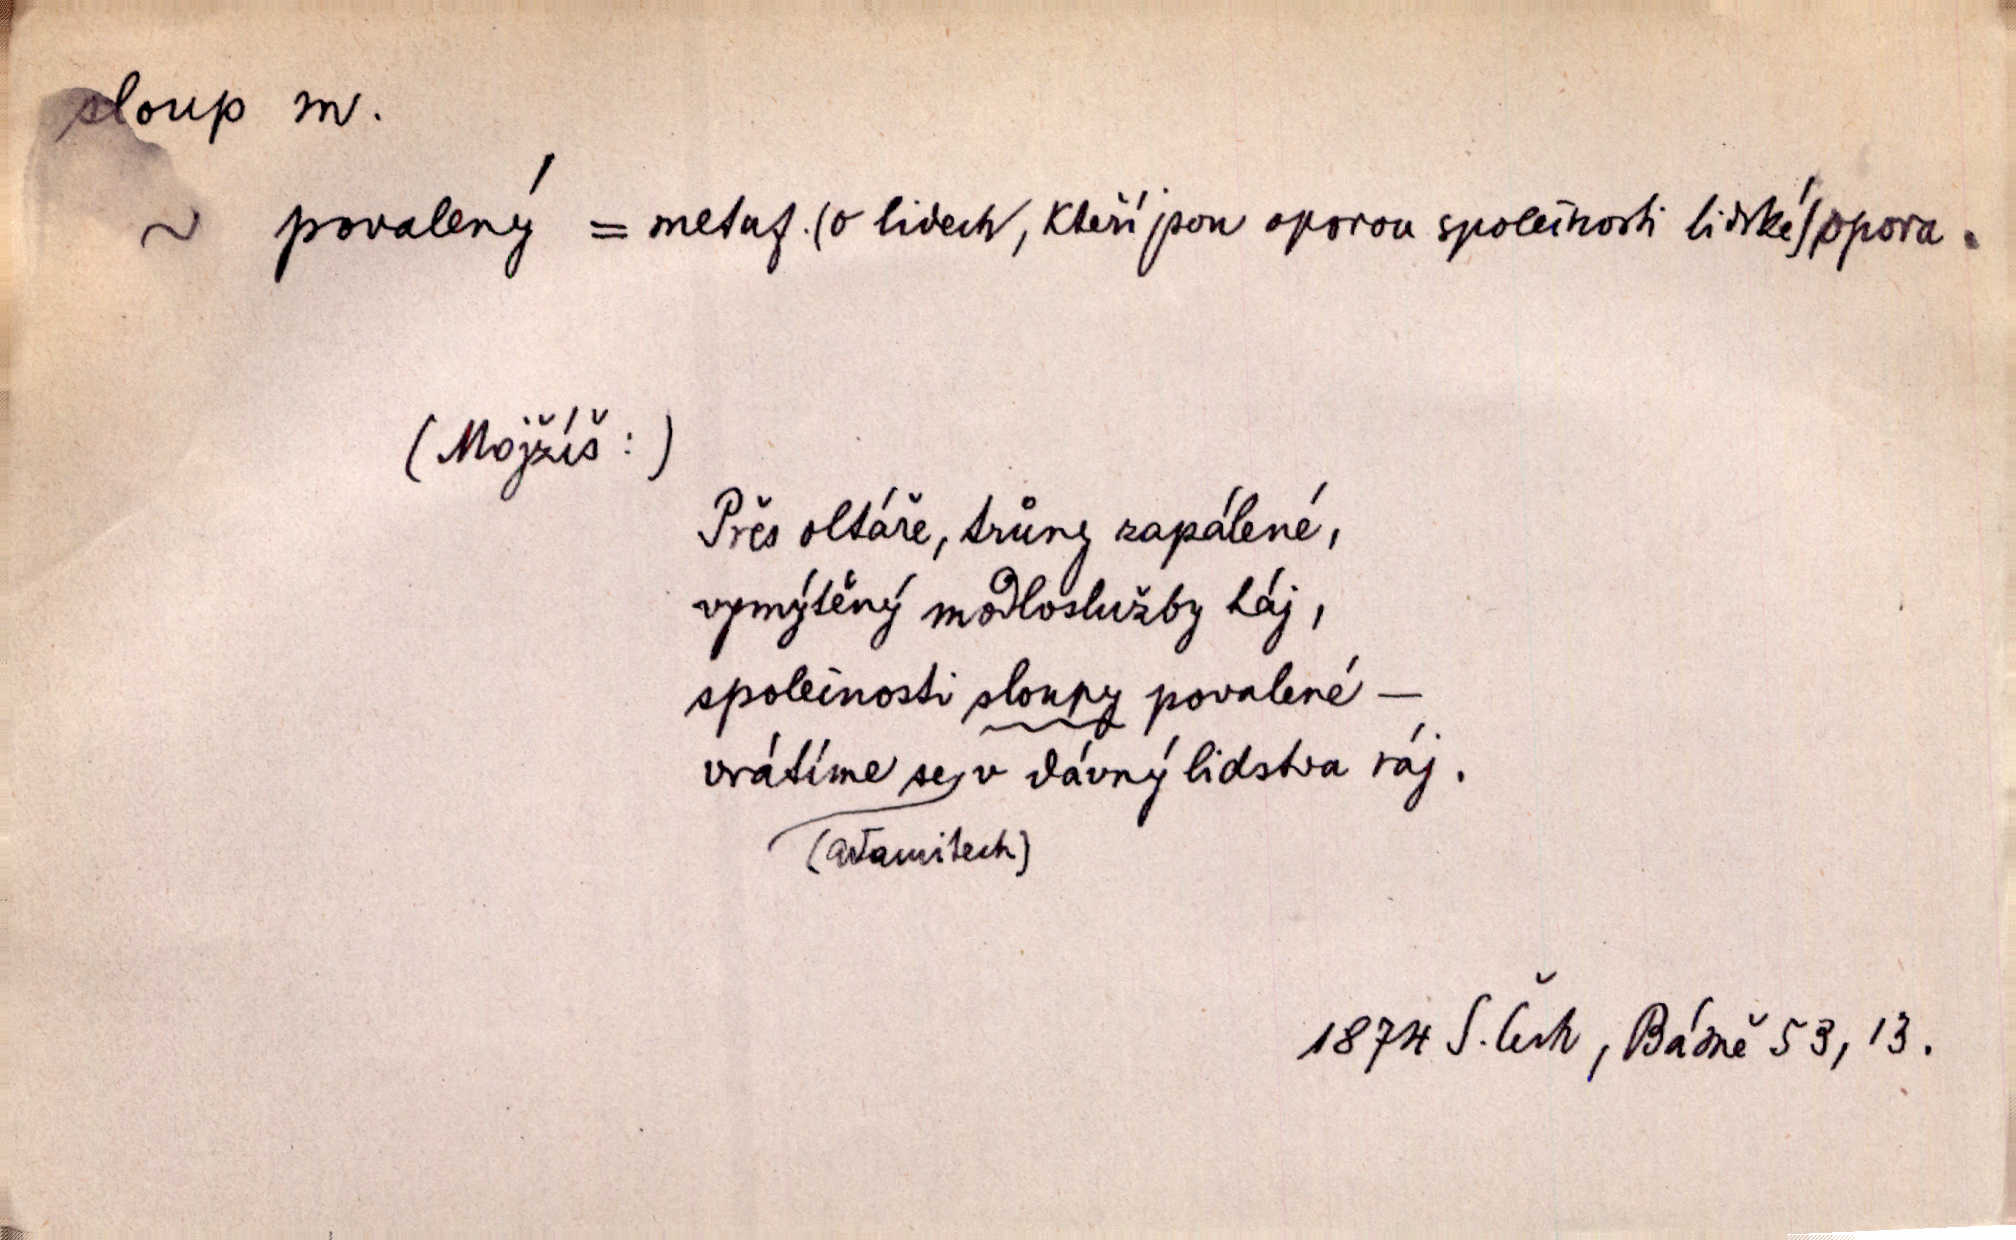 sloup m.
~ povalený = metaf. (o lidech, kteří jsou oporou společnosti lidské) opora.
(Mojžíš:)
Přes oltáře, trůny zapálené,
vymýtěný modloslužby háj,
společnosti sloupy povalené –
vrátíme se v dávný lidstva ráj.
(adamitech)
1874 S. Čech, Básně 53, 13.